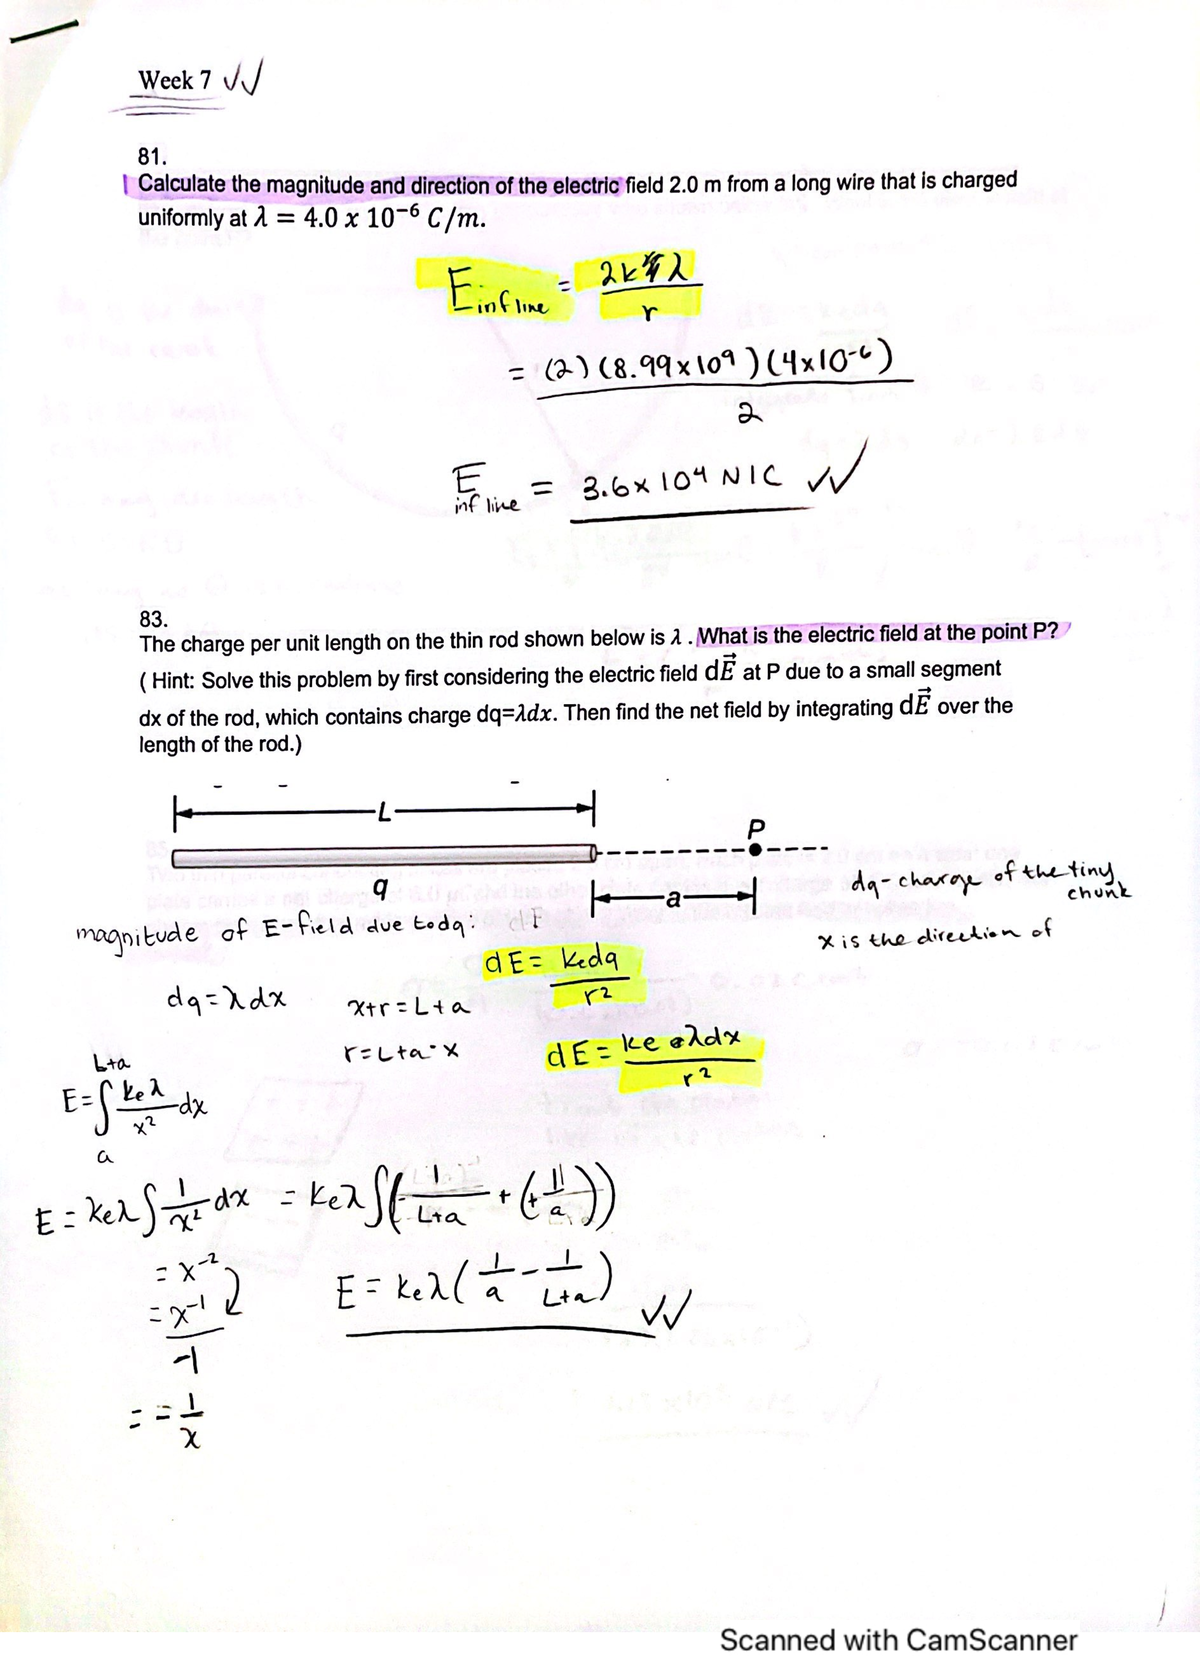 Week 7 ✓✓
81.
Calculate the magnitude and direction of the electric field 2.0 m from a long wire that is charged
uniformly at λ = 4.0 x 10⁻⁶ C/m.
E inf line = 2kλ / r
= (2)(8.99x10⁹)(4x10⁻⁶) / 2
E inf line = 3.6x10⁴ N/C ✓✓
83.
The charge per unit length on the thin rod shown below is λ . What is the electric field at the point P?
( Hint: Solve this problem by first considering the electric field dE⃗ at P due to a small segment
dx of the rod, which contains charge dq=λdx. Then find the net field by integrating dE⃗ over the
length of the rod.)
L
P
q
a
dq - charge of the tiny
chunk
magnitude of E-field due to dq:
x is the direction of
dE = kedq / r²
dq = λdx
x+r = L+a
r = L+a-x
dE = ke λdx / r²
E = ∫ₐᴸ⁺ᵃ keλ / x² dx
E = keλ ∫ 1/x² dx = keλ ∫(- 1/L+a + (+ 1/a))
= x⁻²
= x⁻¹ / -1
E = keλ ( 1/a - 1/L+a ) ✓✓
= - 1/x
Scanned with CamScanner